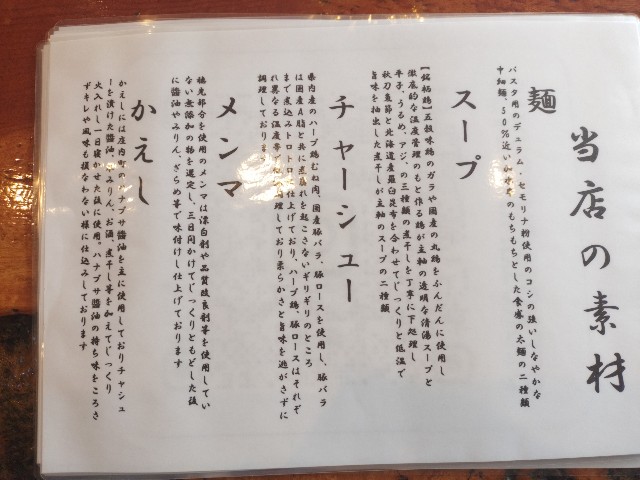 当店の素材
麺
パスタ用のデュラム・セモリナ粉使用のコシの強いしなやかな
中細麺、50%近い加水のもちもちとした食感の太麺の二種類
スープ
【銘柄鶏】五穀味鶏のガラや国産の丸鶏をふんだんに使用し
徹底的な温度管理のもと作る鶏が主軸の透明な清湯スープと
平子、うるめ、アジ、の三種類の煮干しを丁寧に下処理し
秋刀魚節と北海道産羅臼昆布を合わせてじっくりと低温で
旨味を抽出した煮干しが主軸のスープの二種類
チャーシュー
県内産のハーブ鶏むね肉、国産豚バラ、豚ロースを使用し、豚バラ
は国産A脂と共に煮崩れを起こさないギリギリのところ
まで煮込みトロトロに仕上げており、ハーブ鶏、豚ロースはそれぞ
れ異なる温度帯で 理しており柔らかさと旨味を逃がさずに
調理しております
メンマ
穂先部分を使用のメンマは漂白剤や品質改良剤等を使用してい
ない無添加の物を選定し、三日間かけてじっくりともどした後
に醤油やみりん、ざらめ等で味付けし仕上げております
かえし
かえしには庄内町のハナブサ醤油を主に使用しておりチャシュ
ーを漬けた醤油 みりん、お酒、煮干し等を加えてじっくり
火入れし一日寝かせた後に使用。ハナブサ醤油の持ち味をころさ
ずキレや風味も損なわない様に仕込みしております